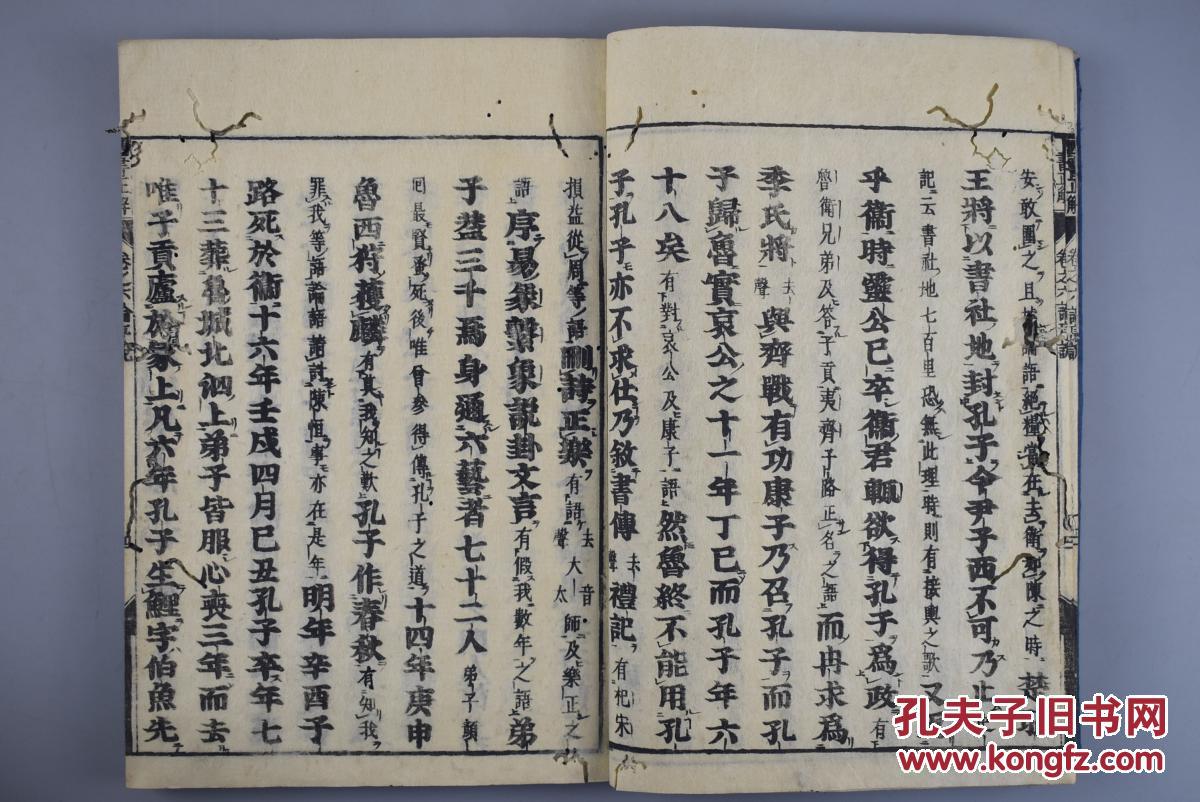 安敢圍之且據論語絕糧當在去衛如陳之時楚昭
王將以書社地封孔子令尹子西不可乃止
記云書社地七百里恐無此理時則有接輿之歌又反
乎衞時靈公已卒衞君輒欲得孔子爲政有
魯衛兄弟及答子貢夷齊子路正名之語而冉求爲
季氏將去聲與齊戰有功康子乃召孔子而孔
子歸魯實哀公之十一年丁巳而孔子年六
十八矣有對哀公及康子語然魯終不能用孔
子孔子亦不求仕乃敘書傳去聲禮記有杞宋
損益從周等語刪詩正樂有語去聲大音太師及樂正之
語序易彖繫象說卦文言有假我數年之語弟
子蓋三千焉身通六藝者七十二人弟子顏
回最賢蚤死後唯曾參得傳孔子之道十四年庚申
魯西狩獲麟有莫我知之歎孔子作春秋有知我
罪我等語論語請討陳恒事亦在是年明年辛酉子
路死於衞十六年壬戌四月己丑孔子卒年七
十三葬魯城北泗上弟子皆服心喪三年而去
唯子貢廬於冢上凡六年孔子生鯉字伯魚先
孔夫子旧书网
www.kongfz.com